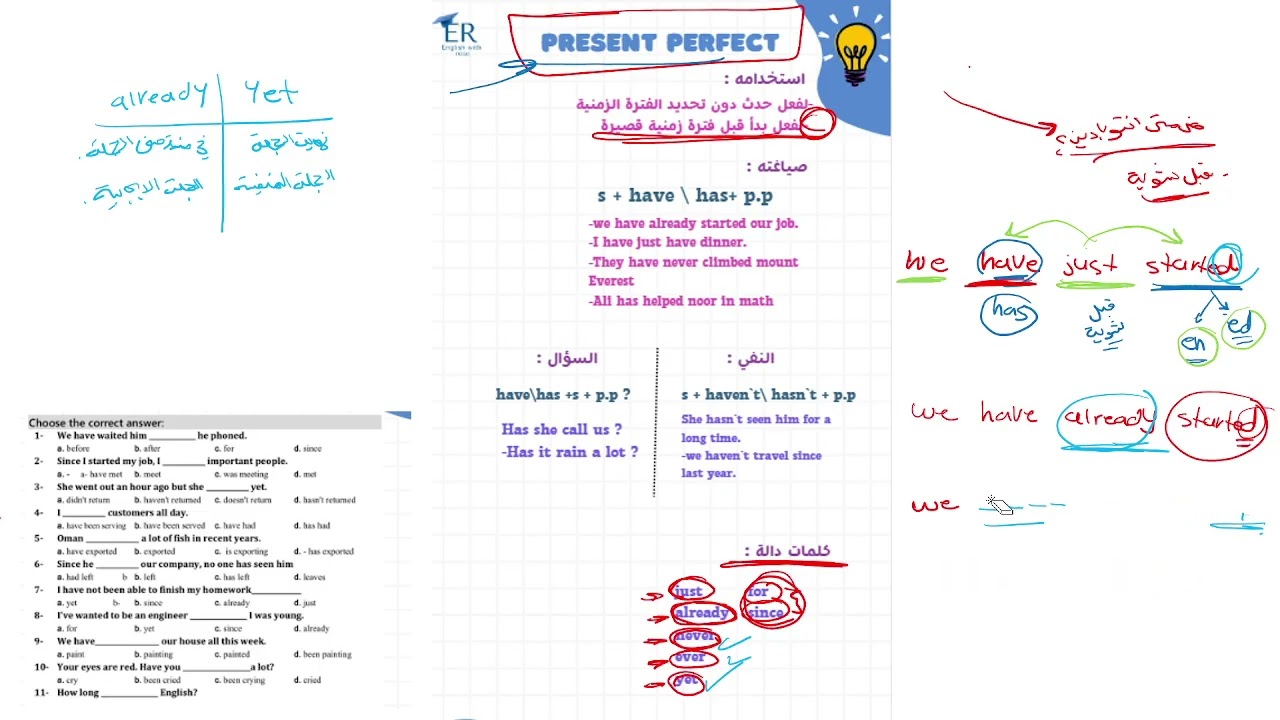 already Yet
في منتصف الجملة. نهاية الجملة
الجملة الايجابية. الجملة المنفية
Choose the correct answer:
1- We have waited him ________ he phoned.
a. before b. after c. for d. since
2- Since I started my job, I ________ important people.
a. - a- have met b. meet c. was meeting d. met
3- She went out an hour ago but she ________ yet.
a. didn't return b. haven't returned c. doesn't return d. hasn't returned
4- I ________ customers all day.
a. have been serving b. have been served c. have had d. has had
5- Oman __________ a lot of fish in recent years.
a. have exported b. exported c. is exporting d. - has exported
6- Since he ________ our company, no one has seen him
a. had left b b. left c. has left d. leaves
7- I have not been able to finish my homework_________
a. yet b- b. since c. already d. just
8- I've wanted to be an engineer __________ I was young.
a. for b. yet c. since d. already
9- We have___________ our house all this week.
a. paint b. painting c. painted d. been painting
10- Your eyes are red. Have you ____________a lot?
a. cry b. been cried c. been crying d. cried
11- How long __________ English?
ER
English with
PRESENT PERFECT
استخدامه :
-لفعل حدث دون تحديد الفترة الزمنية
لفعل بدأ قبل فترة زمنية قصيرة
صياغته :
s + have \ has+ p.p
-we have already started our job.
-I have just have dinner.
-They have never climbed mount
Everest
-Ali has helped noor in math
النفي :
s + haven`t\ hasn`t + p.p
She hasn`t seen him for a
long time.
-we haven`t travel since
last year.
السؤال :
have\has +s + p.p ?
Has she call us ?
-Has it rain a lot ?
كلمات دالة :
just for
already since
never
ever
yet
قبل شوية
we have just started
has قبل شوية en ed
we have already started
we